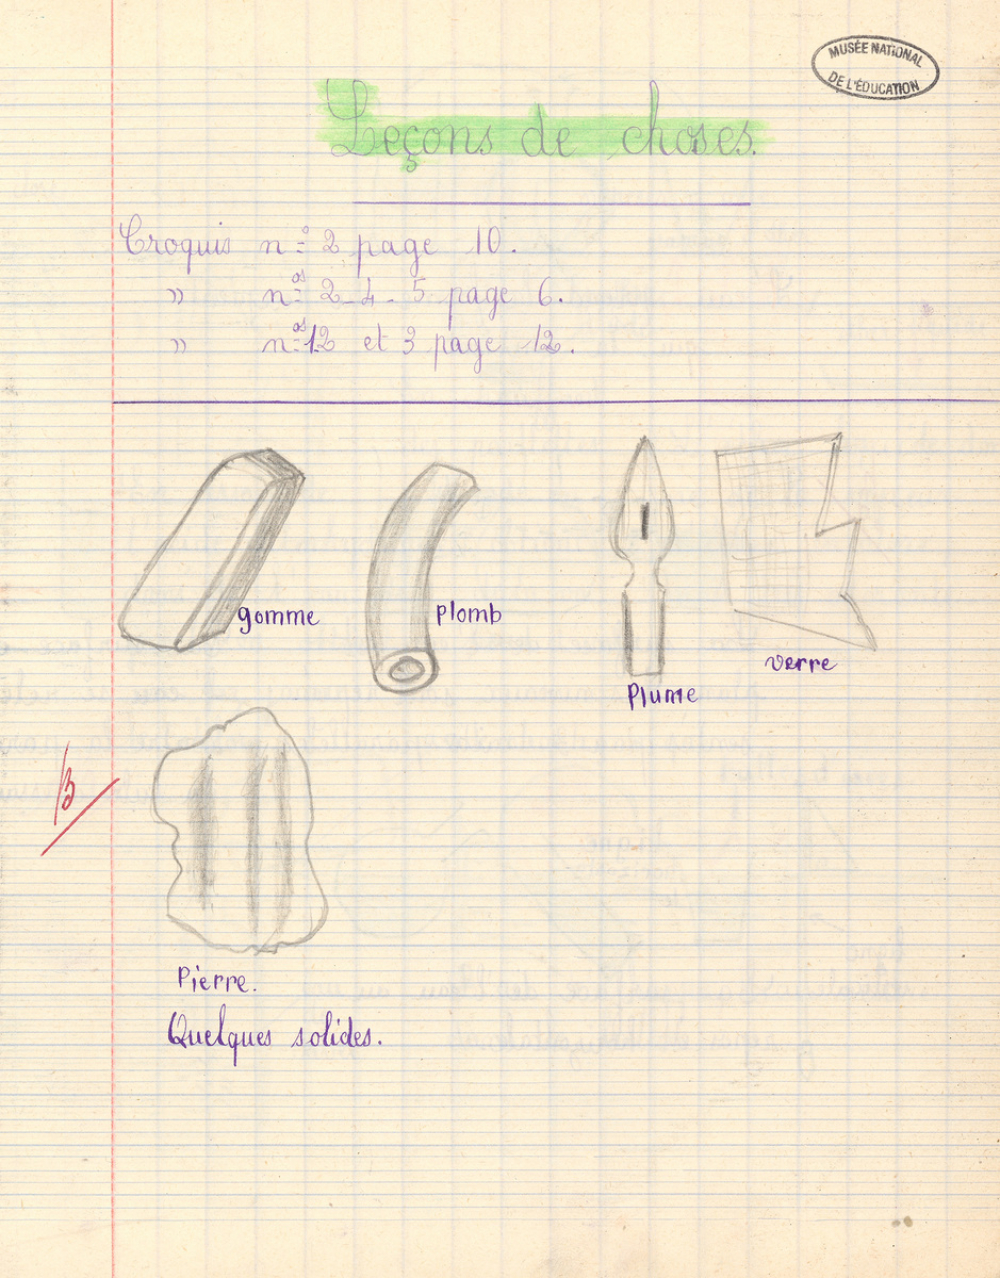 MUSÉE NATIONAL
DE L'ÉDUCATION
Leçons de choses.
Croquis n° 2 page 10.
" nos 2_4_5 page 6.
" nos 12 et 3 page 12.
gomme
plomb
Plume
verre
B
Pierre.
Quelques solides.